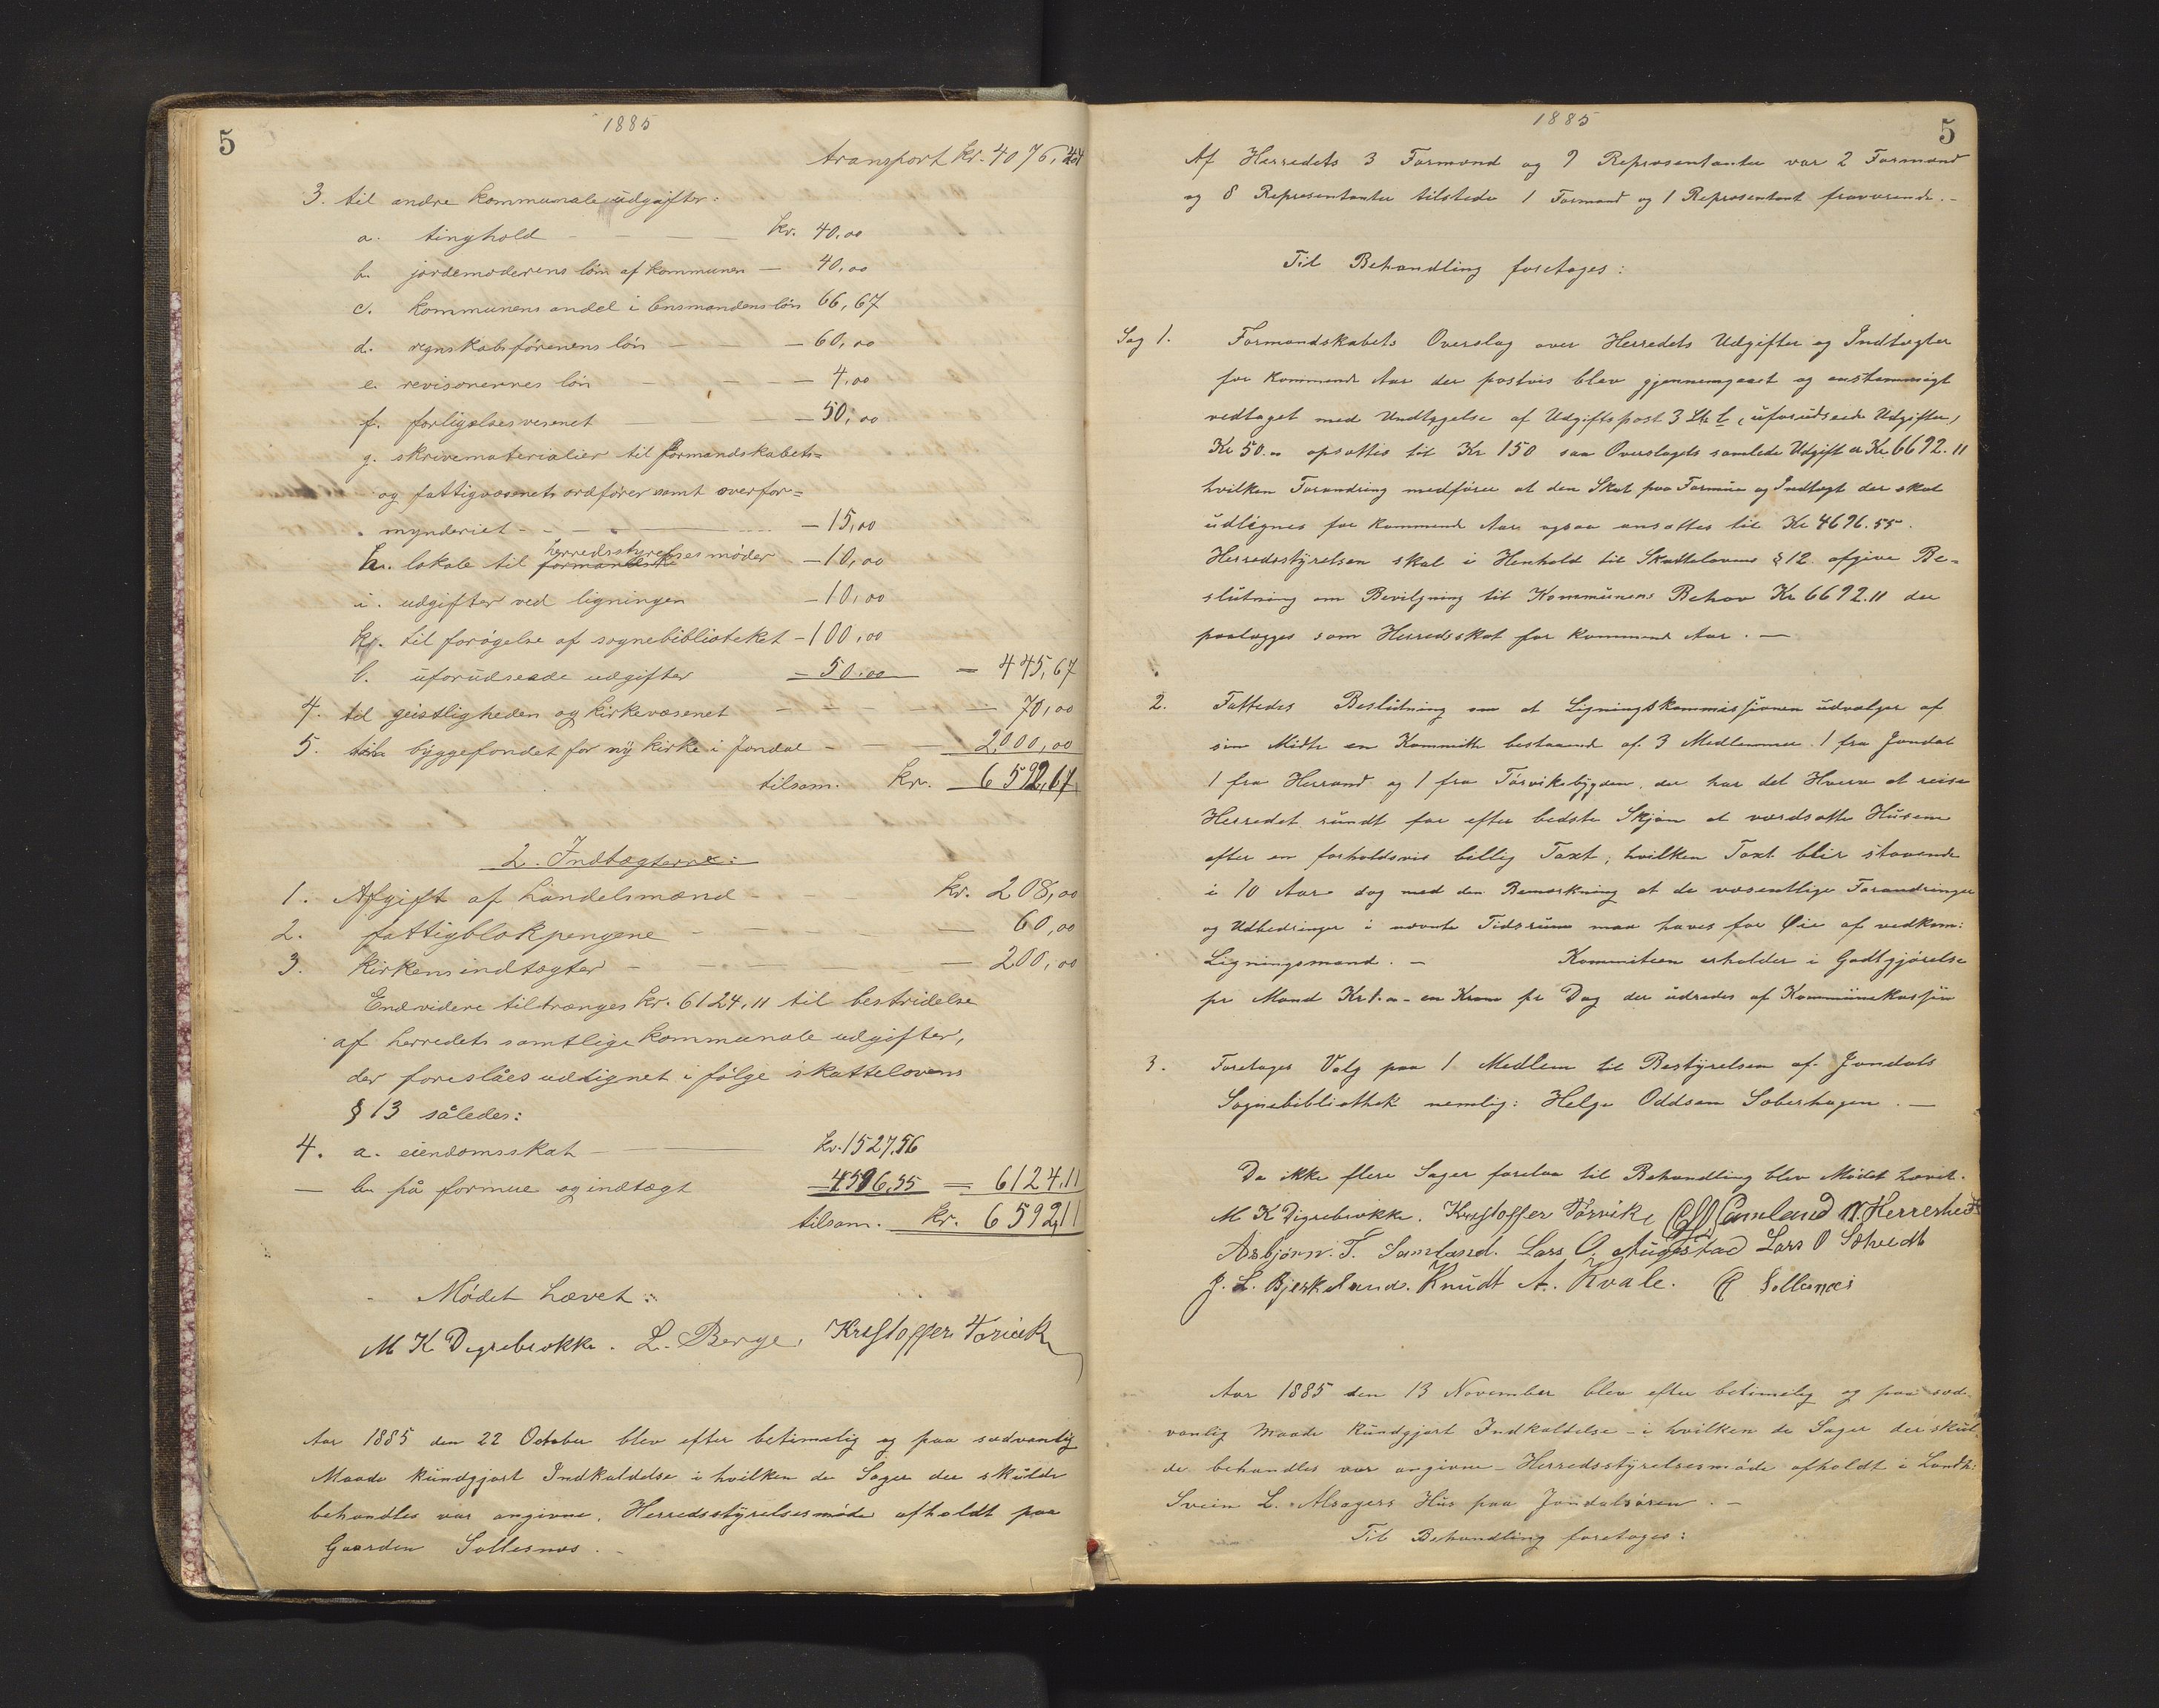 5
1885
transport kr. 4076,44
3. til andre kommunale udgifter:
a. tinghold - - - kr. 40,00
b. jordemoderens løn af kommunen — 40,00
c. kommunens andel i lensmandens løn 66,67
d. regnskabsførerens løn - - — 60,00
e. revisorernes løn - - - — 4,00
f. forligelsesvesenet - - — 50,00
g. skrivematerialier til formandskabets=
og fattigvæsenets ordfører samt overfor=
mynderiet - - - — 15,00
h. lokale til herredsstyrelsesmøder — 10,00
i. udgifter ved ligningen — 10,00
k. til forøgelse af sognebiblioteket - 100,00
l. uforudseede udgifter — 50,00 = 445,67
4. til geistligheden og kirkevæsenet - - - — 70,00
5. til byggefondet for ny kirke i Jondal - - — 2000,00
tilsam. kr. 6592,11
2. Indtægterne:
1. Afgift af handelsmænd - - - kr. 208,00
2. fattigblokpengene - - - — 60,00
3. kirkens indtægter - - - — 200,00
Endvidere tiltrænges kr. 6124,11 til bestridelse
af herredets samtlige kommunale udgifter,
der foreslåes udlignet i følge skattelovens
§ 13 således:
4. a. eiendomsskat — kr. 1527,56
— b. på formue og indtægt — 4596,55 = 6124,11
tilsam. kr. 6592,11
Mødet hævet:
M K Digrebrække. L. Berge, Kristoffer Torvik
Aar 1885 den 22 October blev efter betimelig og paa sædvanlig
Maade kundgjort Indkaldelse i hvilken de Sager der skulde
behandles var angivne, Herredsstyrelsesmøde afholdt paa
Gaarden Sollesnæs.
1885
5
Af Herredets 3 Formænd og 9 Repræsentanter var 2 Formænd
og 8 Repræsentanter tilstede 1 Formand og 1 Repræsentant fraværende. -
Til Behandling foretoges:
Sag 1. Formandskabets Overslag over Herredets Udgifter og Indtægter
for kommende Aar der postvis blev gjennemgaaet og enstemmigt
vedtaget med Undtagelse af Udgiftspost 3 Lit. l, (uforudseede Udgifter)
Kr 50.00 opsattes til Kr 150 saa Overslagets samlede Udgift er Kr. 6692.11
hvilken Forandring medfører at den Skat paa Formue og Indtægt der skal
udlignes for kommende Aar ogsaa ansættes til Kr 4696.55.
Herredsstyrelsen skal i Henhold til Skattelovens § 12 afgive Be=
slutning om Bevilgning til Kommunens Behov Kr 6692.11 der
paalægges som Herredsskat for kommende Aar. —
2. Fattedes Beslutning om at Ligningskommissionen udvælger af
sin Midte en Kommitte bestaaende af 3 Medlemmer. 1 fra Jondal
1 fra Herrand og 1 fra Torviksbygden, der har det Hverv at reise
Herredet rundt for efter bedste Skjøn at værdsætte Husene
efter en forholdsvis billig Taxt, hvilken Taxt blir staaende
i 10 Aar dog med den Bemærkning at de væsentlige Forandringer
og Udbedringer i nævnte Tidsrum maa haves for Øie af vedkom:
Ligningsmænd. — Kommiteen erholder i Godtgjørelse
pr Mand Kr 1.00 en Krone pr Dag der udredes af Kommunekassen
3. Foretoges Valg paa 1 Medlem til Bestyrelsen af Jondals
Sognebibliothek nemlig: Helge Oddsen Soberhagen. —
Da ikke flere Sager forelaa til Behandling blev Mødet hævet.
M K Digrebrække. Kristoffer Torvik Samland N. Herrestvedt
Asbjørn. T. Samland. Lars O. Augestad Lars O Sætvedt
J. L. Bjerkeland. Knudt A. Kvale. Sollesnæs
Aar 1885 den 13 November blev efter betimelig og paa sæd-
vanlig Maade kundgjort Indkaldelse - i hvilken de Sager der skul
de behandles var angivne - Herredsstyrelsesmøde afholdt i Landh:
Svein L. Alsagers Hus paa Jondalsøren. —
Til Behandling foretoges: